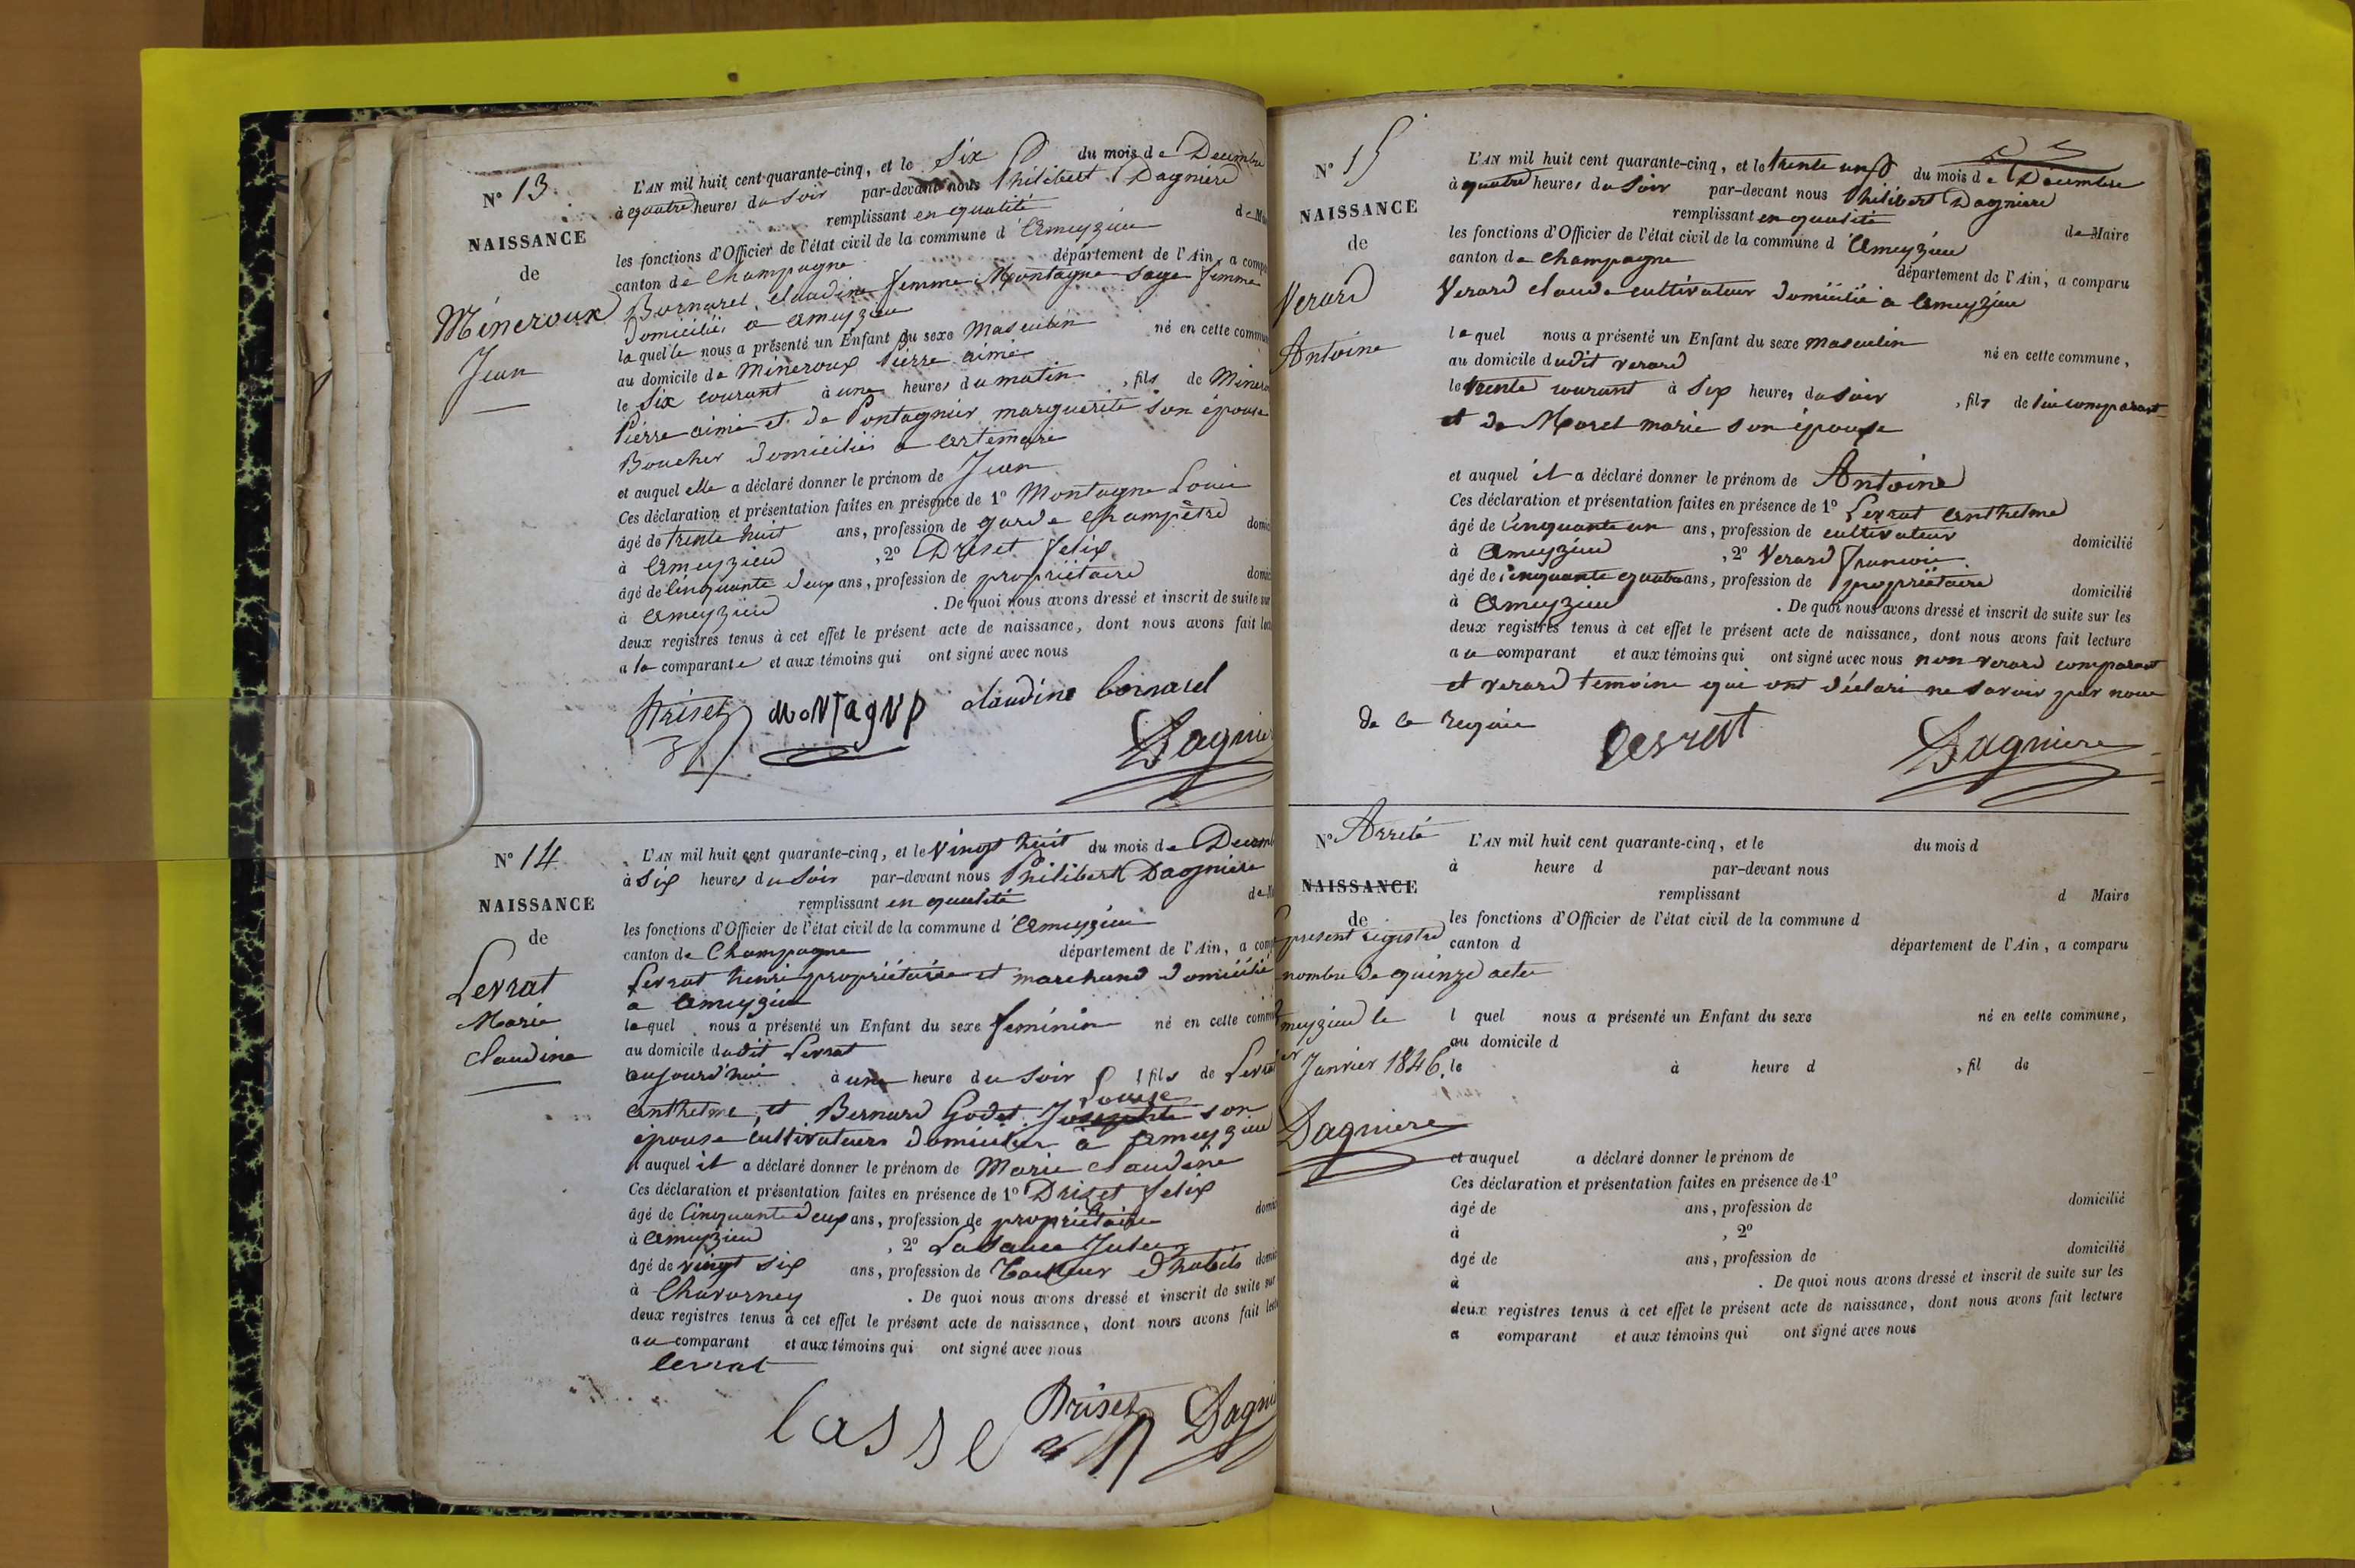 N° 13.
NAISSANCE
de
Mineroux
Jean
L'AN mil huit cent quarante-cinq, et le Six du mois de Decembre
à quatre heures du Soir par-devant nous Philibert Dagniere
remplissant en qualité de M
les fonctions d'Officier de l'état civil de la commune d'Ameyzieu
canton de Champagne département de l'Ain, a compa
Bornarel Claudine femme Montagne sage femme
Domicilié à Ameyzieu
laquelle nous a présenté un Enfant du sexe Masculin né en cette commun
au domicile de Mineroux Pierre aimé
le Six courant à une heures du matin, fils de Minero
Pierre aimé et de Pontagnier marguerite son épouse
Boucher domiciliés a Artemare
et auquel elle a déclaré donner le prénom de Jean
Ces déclaration et présentation faites en présence de 1° Montagne Louis
âgé de trente huit ans, profession de garde Champêtre domic
à Ameyzieu, 2° Driset felix
âgé de Cinquante deux ans, profession de propriétaire domic
à Ameyzieu. De quoi nous avons dressé et inscrit de suite sur
deux registres tenus à cet effet le présent acte de naissance, dont nous avons fait lec
a la comparante et aux témoins qui ont signé avec nous
Driset MoNTagNe claudine bornarel
Dagnie
N° 14
NAISSANCE
de
Levrat
Marie
Claudine
L'AN mil huit cent quarante-cinq, et le Vingt huit du mois de Decemb
à Six heures du Soir par-devant nous Philibert Dagniere
remplissant en qualité de M
les fonctions d'Officier de l'état civil de la commune d'Ameyzieu
canton de Champagne département de l'Ain, a comp
Levrat henri propriétaire et marchand domicilié
a Ameyzieu
lequel nous a présenté un Enfant du sexe feminin né en cette commu
au domicile dudit Levrat
aujourd'hui à une heure du Soir, fils de Levrat
Anthelme, et Bernard Godet Josephte Louise son
épouse cultivateurs domiciliés à Ameyzieu
auquel il a déclaré donner le prénom de Marie Claudine
Ces déclaration et présentation faites en présence de 1° Driset felix
âgé de Cinquante deux ans, profession de propriétaire domic
à Ameyzieu, 2° Lasause Jules
âgé de vingt six ans, profession de tailleur d'habits domic
à Chavorney. De quoi nous avons dressé et inscrit de suite sur
deux registres tenus à cet effet le présent acte de naissance, dont nous avons fait lect
au comparant et aux témoins qui ont signé avec nous
Levrat
lasse Driset Dagni
N° 15
NAISSANCE
de
Verard
Antoine
L'AN mil huit cent quarante-cinq, et le trente un du mois de Décembre
à quatre heures du Soir par-devant nous Philibert Dagniere
remplissant en qualité de Maire
les fonctions d'Officier de l'état civil de la commune d'Ameyzieu
canton de Champagne département de l'Ain, a comparu
Verard claude cultivateur domicilié a Ameyzieu
lequel nous a présenté un Enfant du sexe masculin né en cette commune,
au domicile dudit verard
le trente courant à Six heures du soir, fils de lui comparant
et de Morel marie son épouse
et auquel il a déclaré donner le prénom de Antoine
Ces déclaration et présentation faites en présence de 1° Levrat Anthelme
âgé de Cinquante un ans, profession de cultivateur domicilié
à Ameyzieu, 2° Verard francois
âgé de Cinquante quatre ans, profession de propriétaire domicilié
à Ameyzieu. De quoi nous avons dressé et inscrit de suite sur les
deux registres tenus à cet effet le présent acte de naissance, dont nous avons fait lecture
au comparant et aux témoins qui ont signé avec nous non verard comparant
et verard temoins que ont déclaré ne savoir par nous
de ce requis
Levrat Dagniere
N° Arreté
NAISSANCE
de
present registre
nombre de quinze actes
meyzieu le
er Janvier 1846.
Dagniere
L'AN mil huit cent quarante-cinq, et le du mois d
à heure d par-devant nous
remplissant d Maire
les fonctions d'Officier de l'état civil de la commune d
canton d département de l'Ain, a comparu
l quel nous a présenté un Enfant du sexe né en cette commune,
au domicile d
le à heure d, fil de
et auquel a déclaré donner le prénom de
Ces déclaration et présentation faites en présence de 1°
âgé de ans, profession de domicilié
à, 2°
âgé de ans, profession de domicilié
à. De quoi nous avons dressé et inscrit de suite sur les
deux registres tenus à cet effet le présent acte de naissance, dont nous avons fait lecture
a comparant et aux témoins qui ont signé avec nous